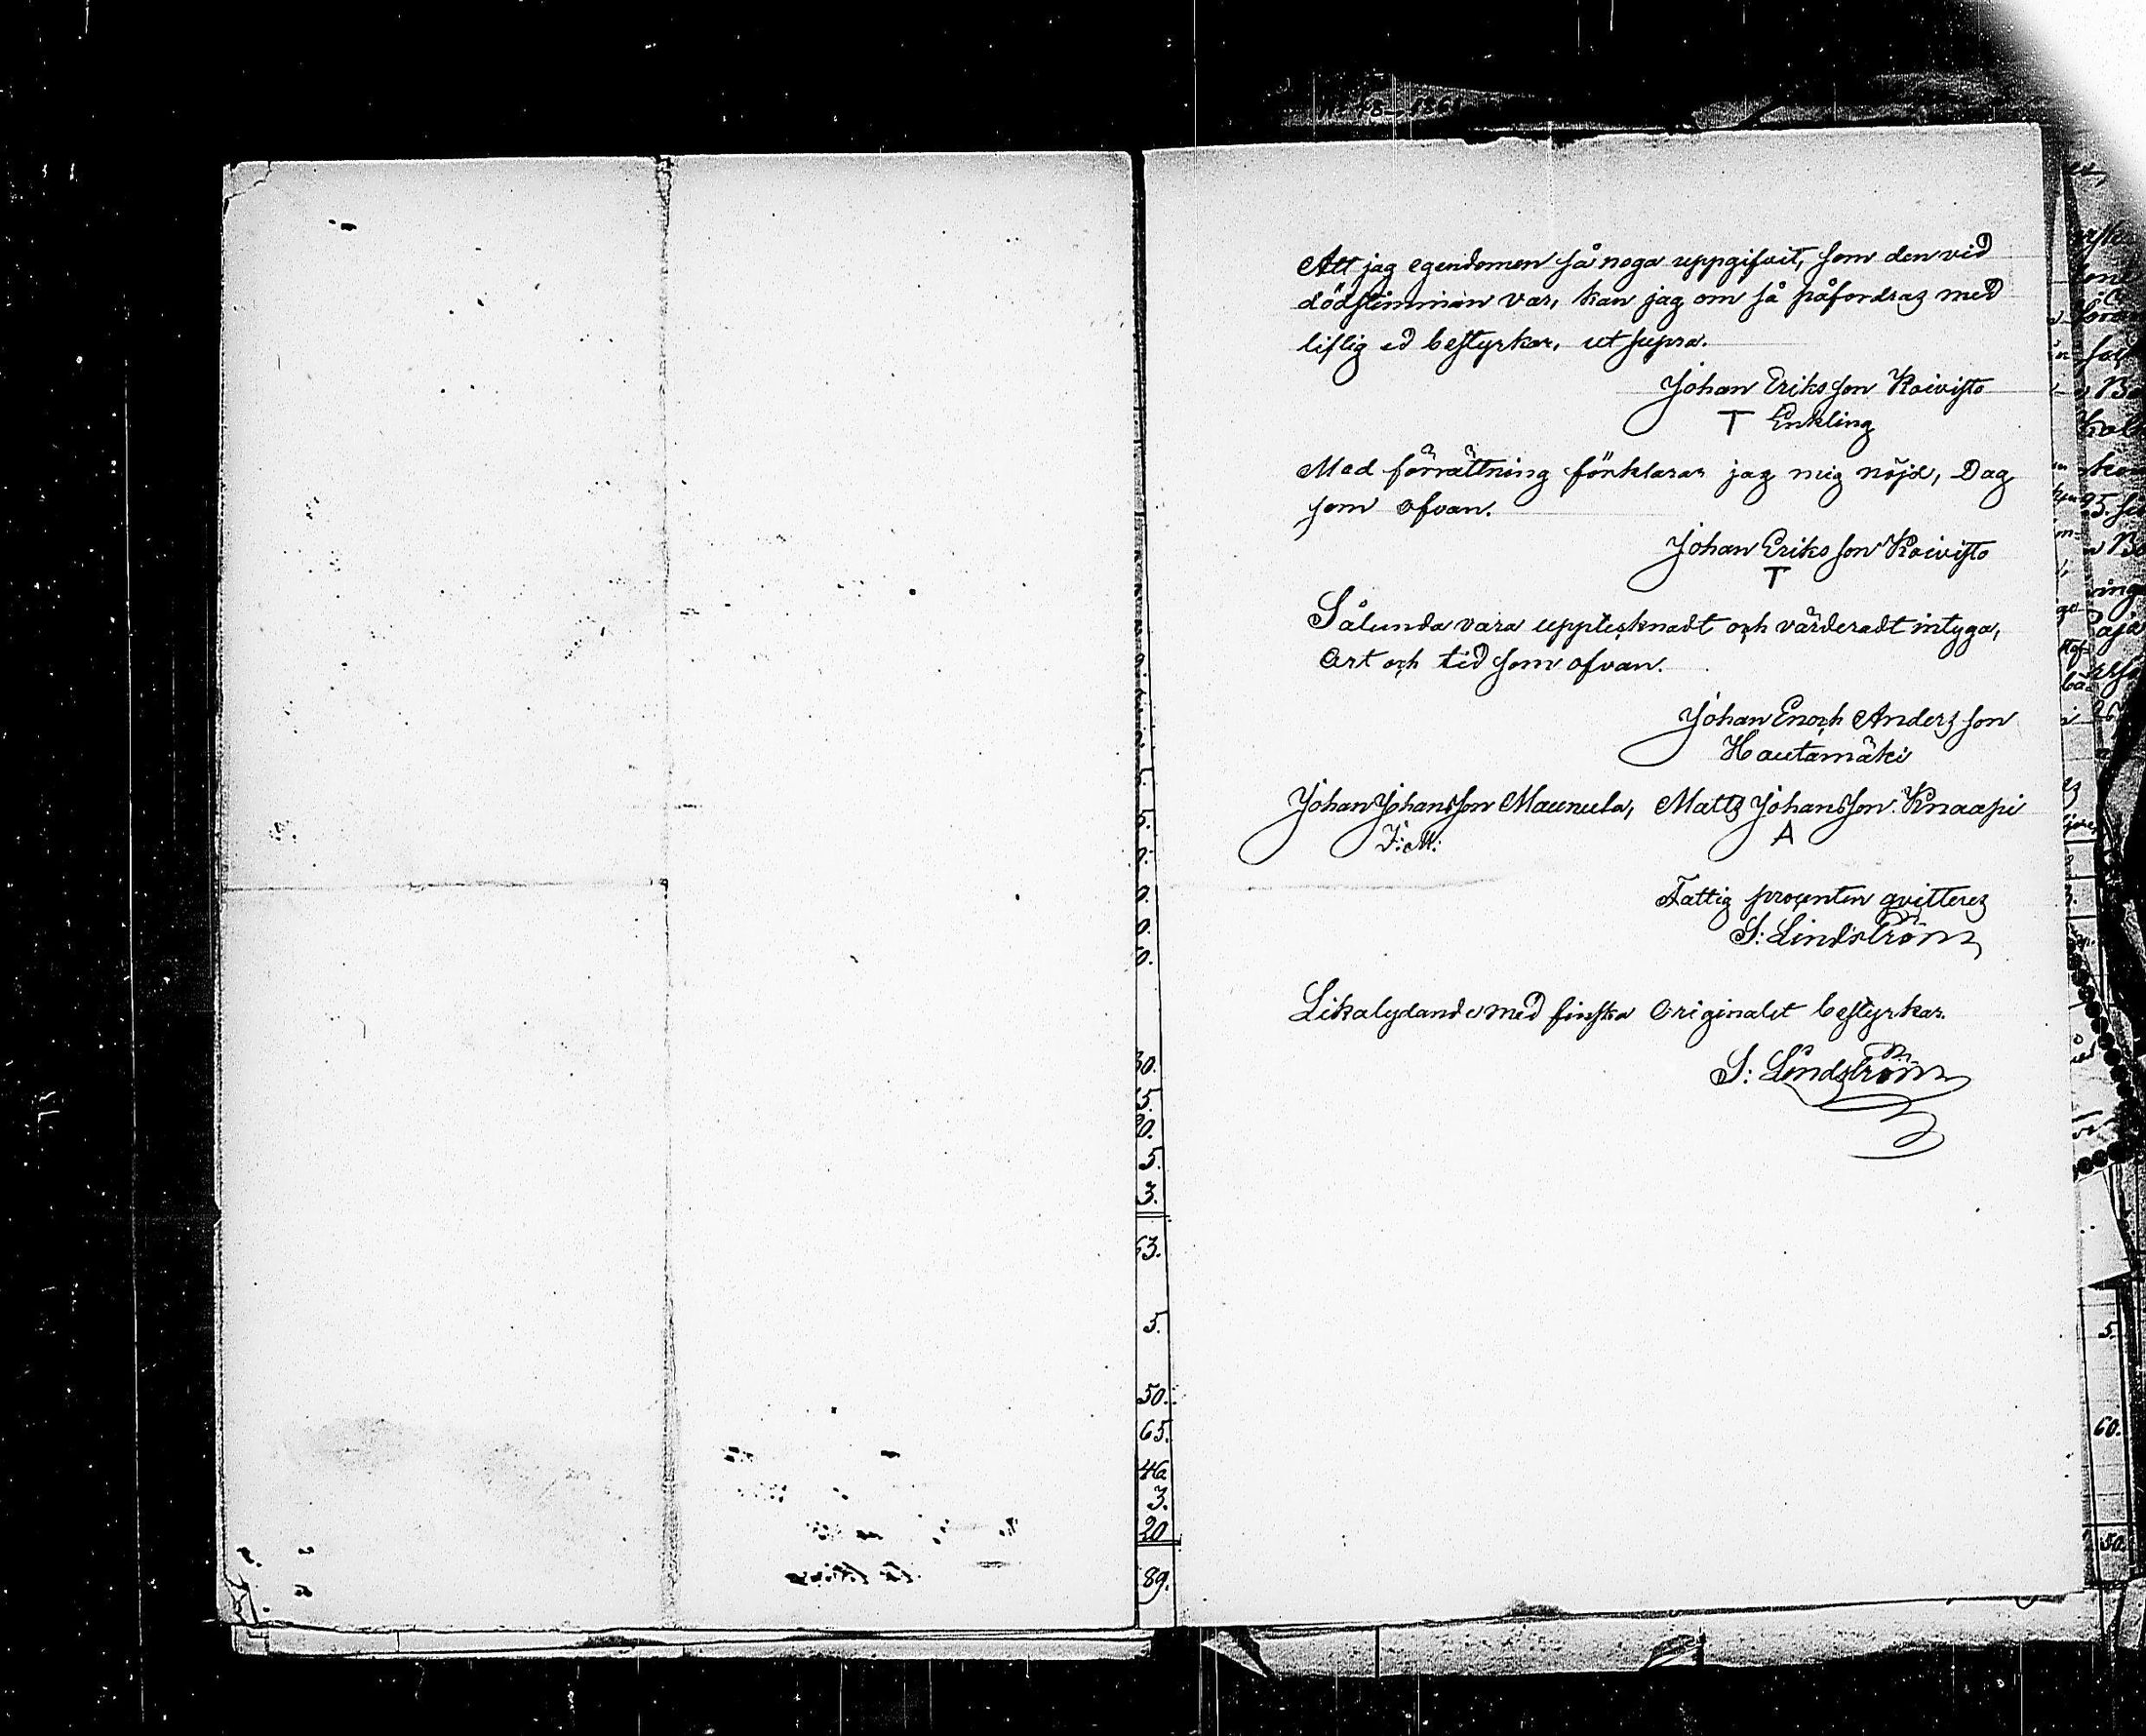 Att jag egendomen så noga uppgifvit, som den vid
dödstimman var, kan jag om så påfordras med
liflig ed bestyrkar, ut supra.
Johan Eriksson Koivisto
T Enkling
Med förrättning förklarar jag mig nöjd, Dag
som ofvan.
Johan Eriksson Koivisto
T
Sålunda vara upptecknadt och värderadt intyga,
Ort och tid som ofvan.
Johan Enoch Andersson
Hautamäki
Johan Johansson Maunula, Matts Johansson Knaapi
J: M: A
Fattig procenten qvitteras
S: Lindström
Likalydande med finska Originalet bestyrkar.
S: Lindström
30.
5.
3.
63.
5.
50.
65.
46
3.
20
89.
5.
60.
50.